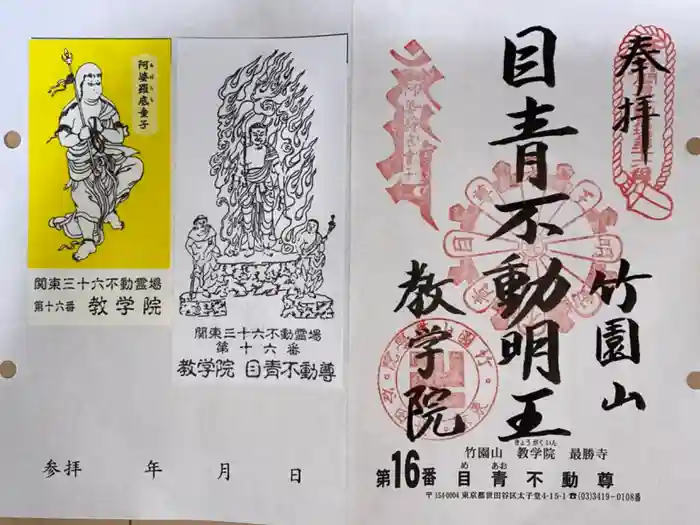 阿婆羅底童子
関東三十六不動霊場
第十六番 教学院
関東三十六不動霊場
第十六番
教学院 目青不動尊
参拝 年 月 日
奉拝
目青不動明王
竹園山
教学院
きょうがくいん
竹園山 教学院 最勝寺
め あお
第16番 目青不動尊
〒154-0004 東京都世田谷区太子堂4-15-1 ☎(03)3419-0108番